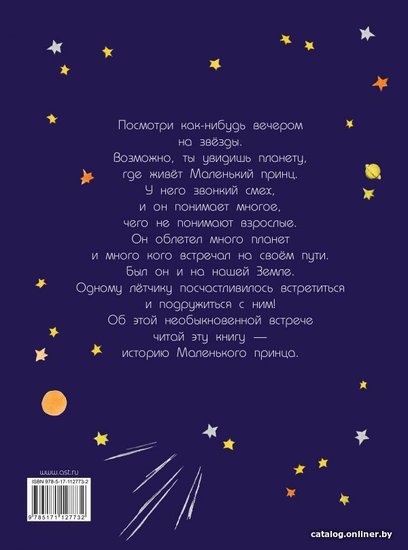 Посмотри как-нибудь вечером
на звёзды.
Возможно, ты увидишь планету,
где живёт Маленький принц.
У него звонкий смех,
и он понимает многое,
чего не понимают взрослые.
Он облетел много планет
и много кого встречал на своём пути.
Был он и на нашей Земле.
Одному лётчику посчастливилось встретиться
и подружиться с ним!
Об этой необыкновенной встрече
читай эту книгу —
историю Маленького принца.
www.ast.ru
ISBN 978-5-17-112773-2
9785171127732
catalog.onliner.by